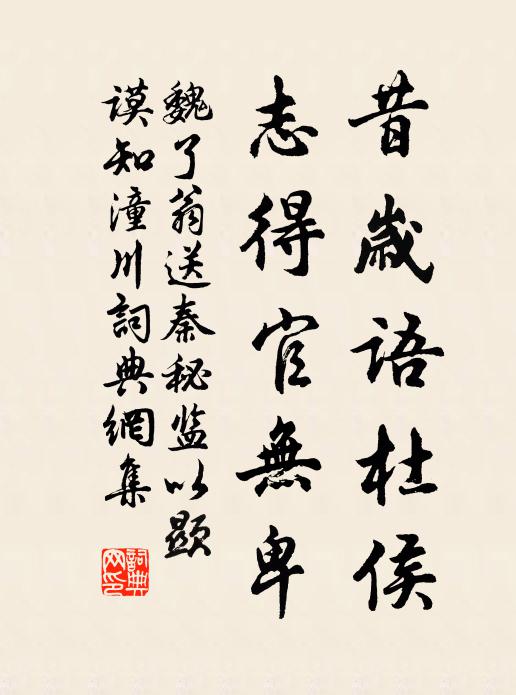 昔歲語杜侯
志得官無卑
魏了翁送秦秘监以顯
謨知潼川詞典網集
詞典網印